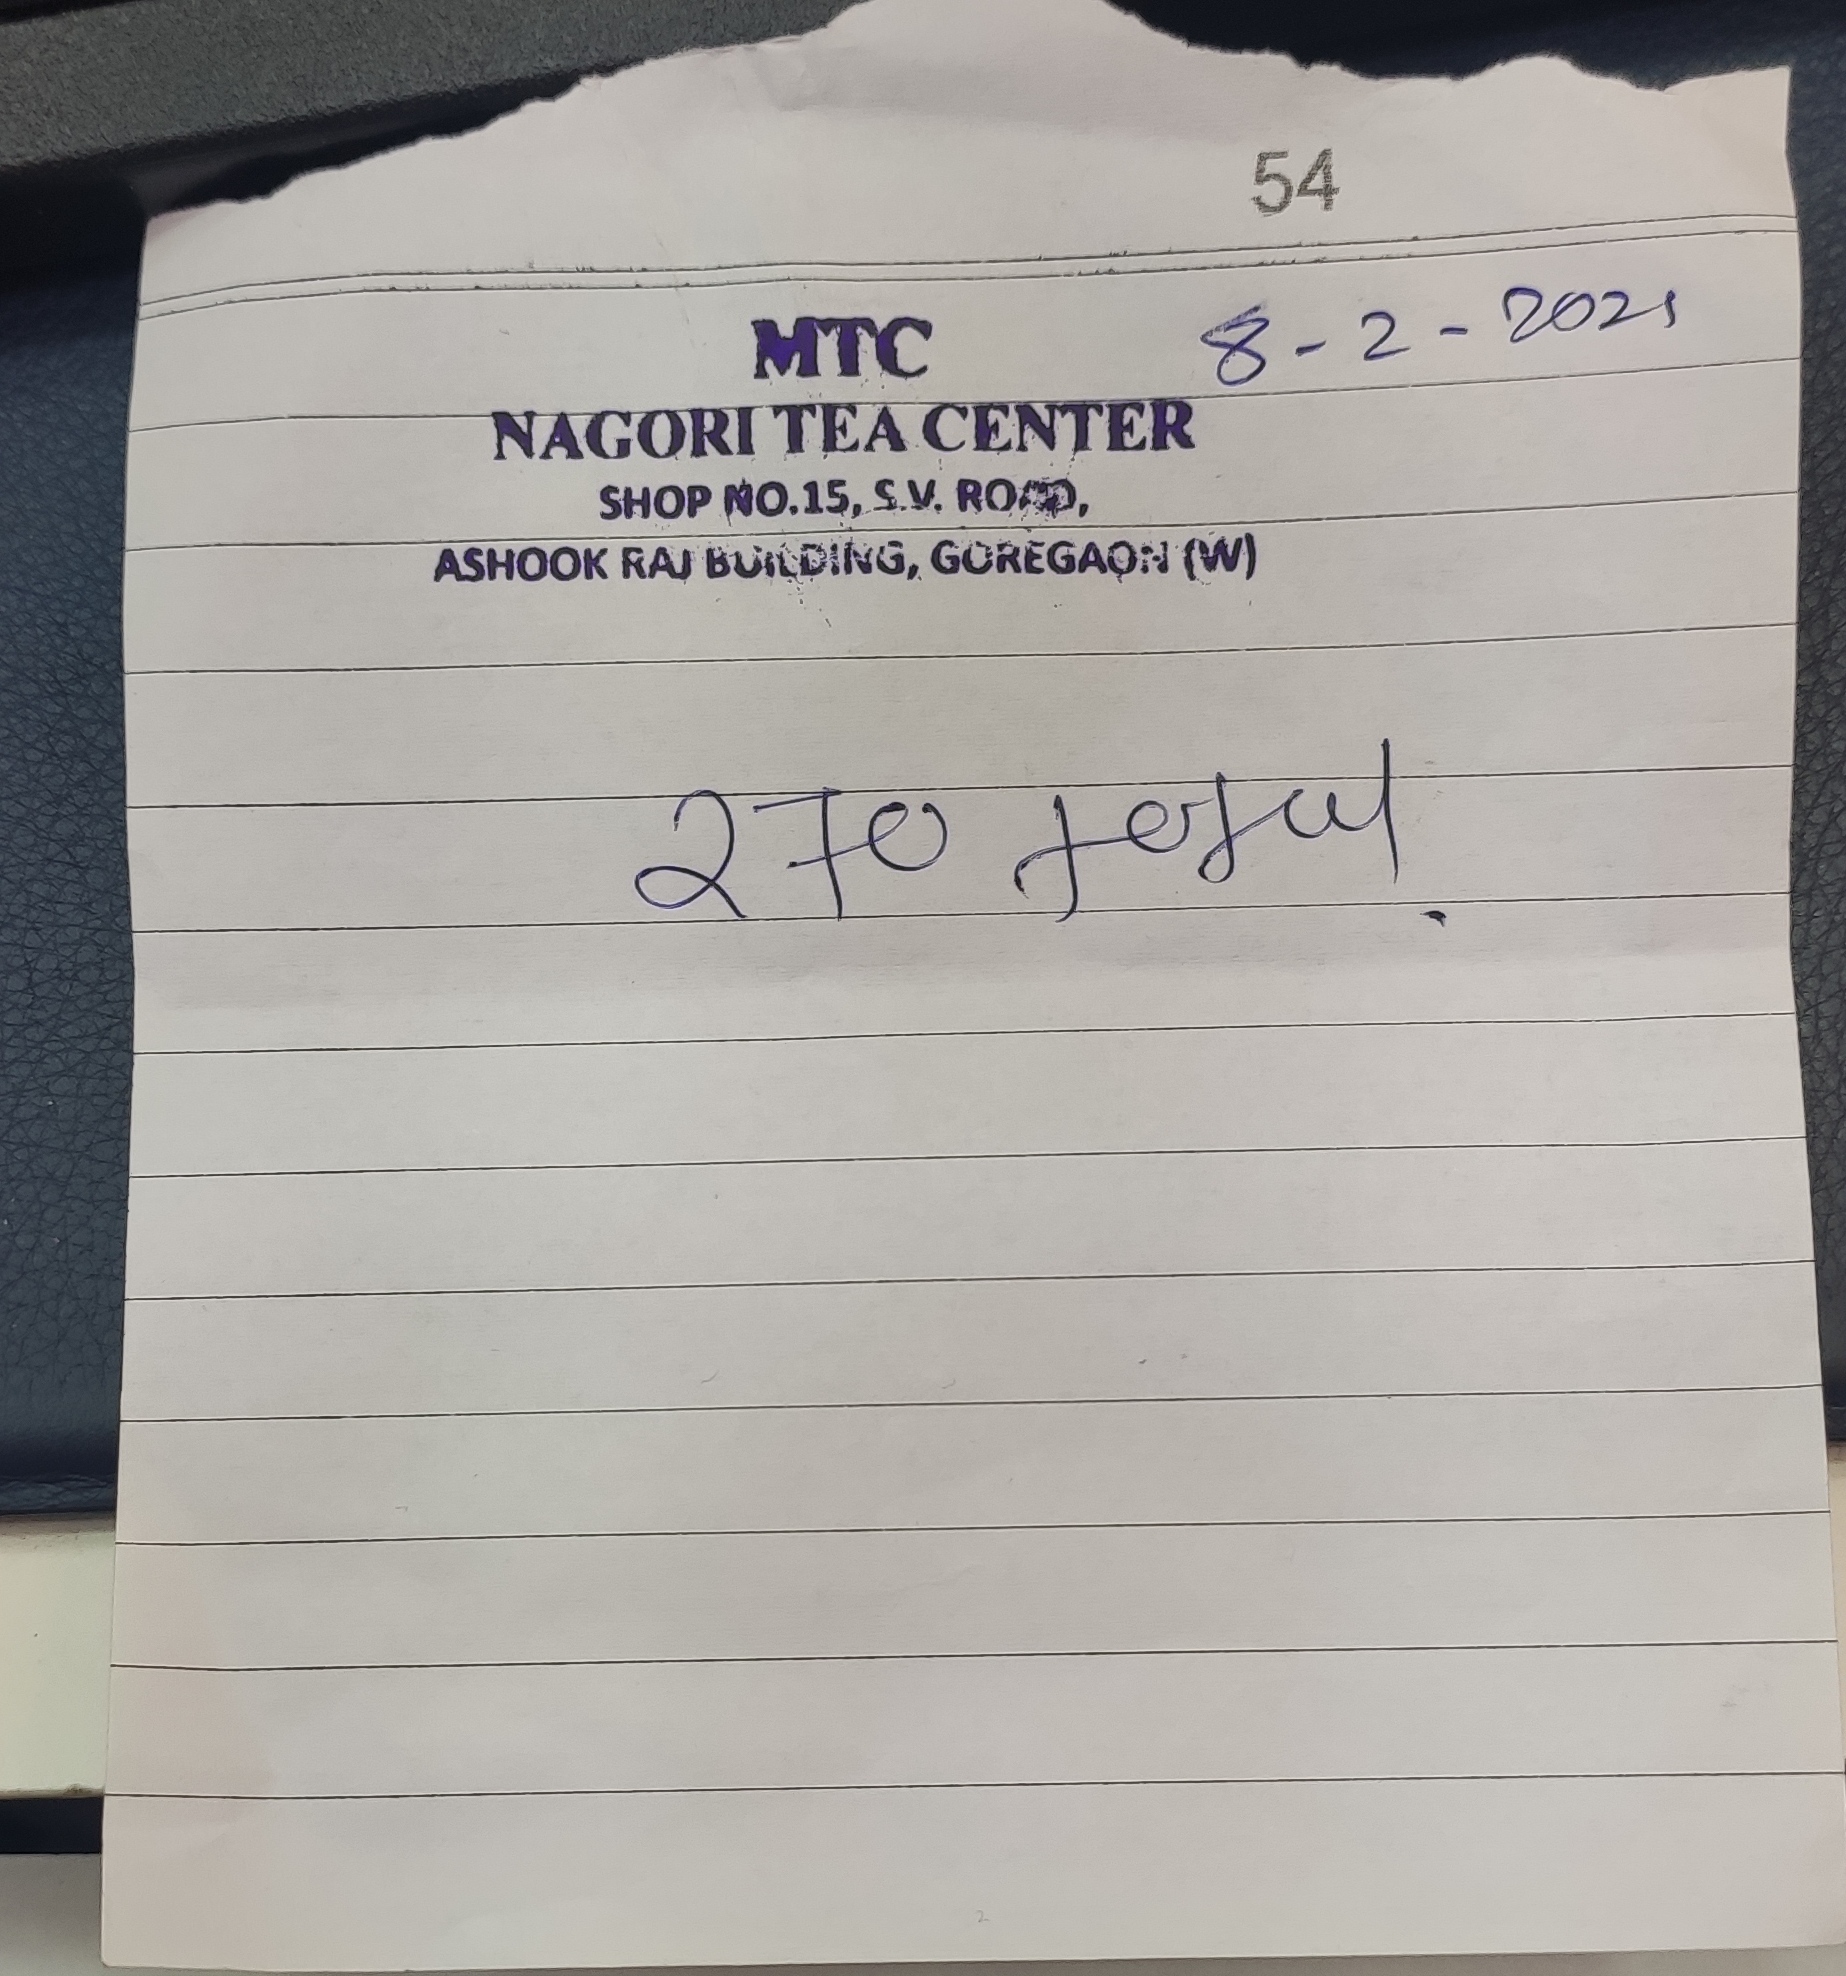 54
MTC 8-2-2021
NAGORI TEA CENTER
SHOP NO.15, S.V. ROAD,
ASHOOK RAJ BUILDING, GOREGAON (W)
270
2